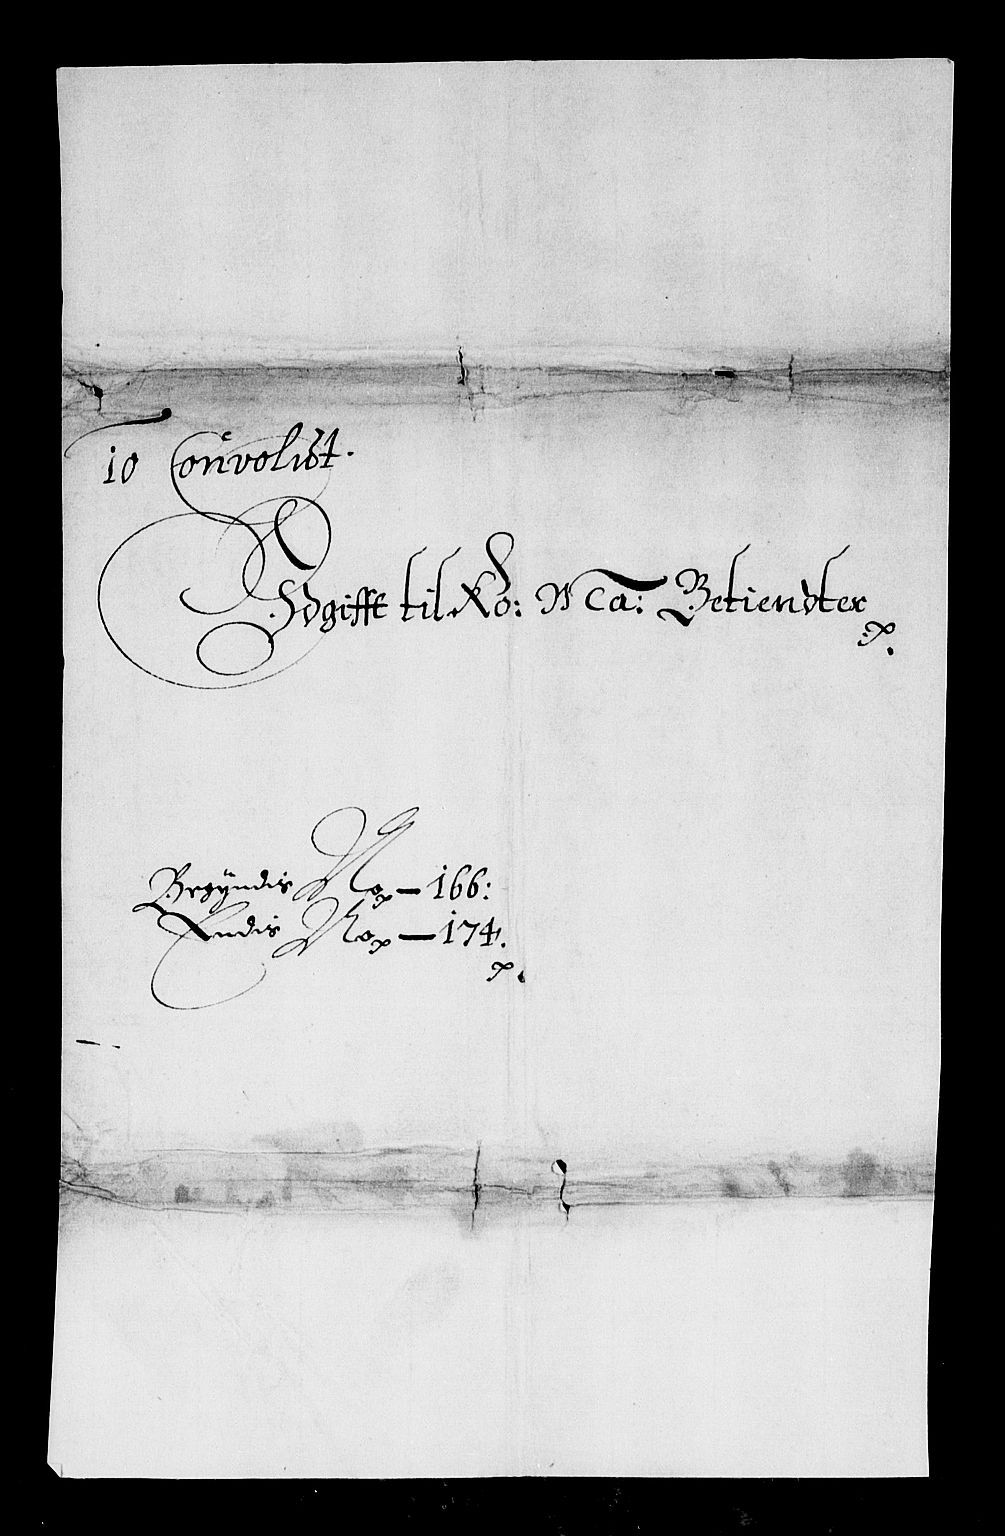 10 Convolut.
Udgifft til Ko: Ma: Betiendter
Begÿndis No 166:
Endis No 174.